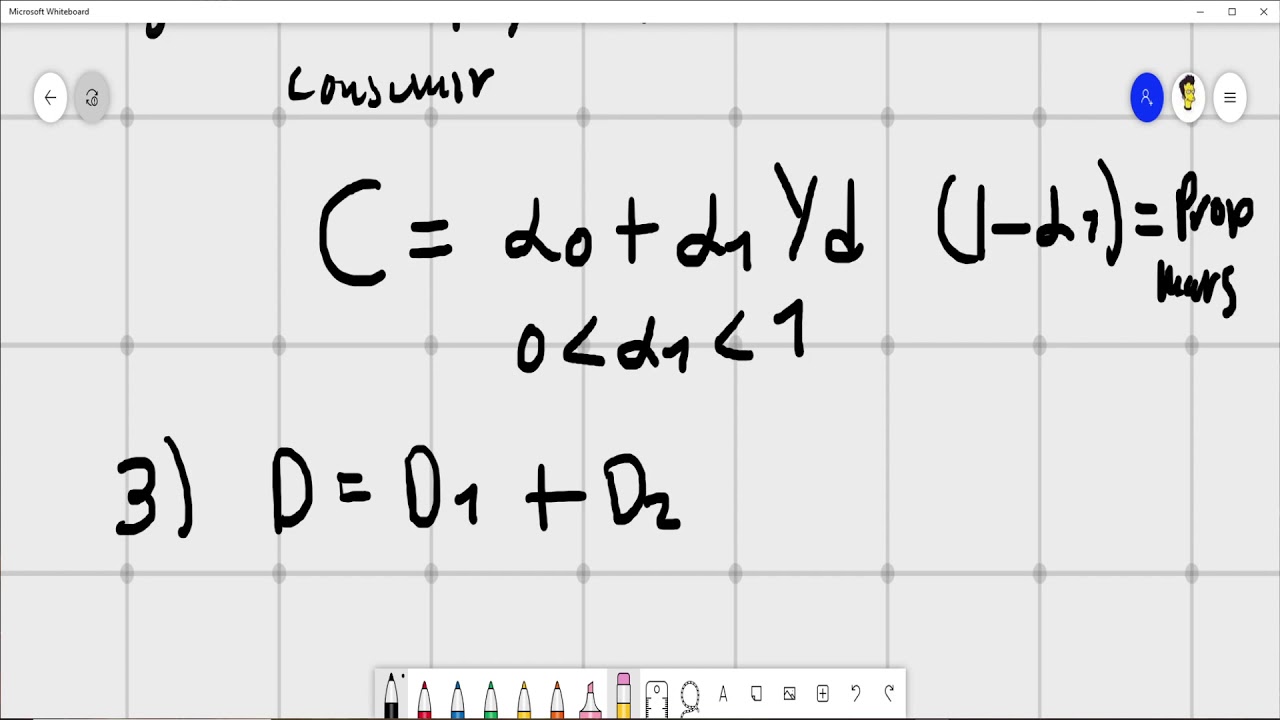 Microsoft Whiteboard
consumir
C = α0 + α1 Yd (1-α1) = Prop
marg
0 < α1 < 1
3) D = D1 + D2